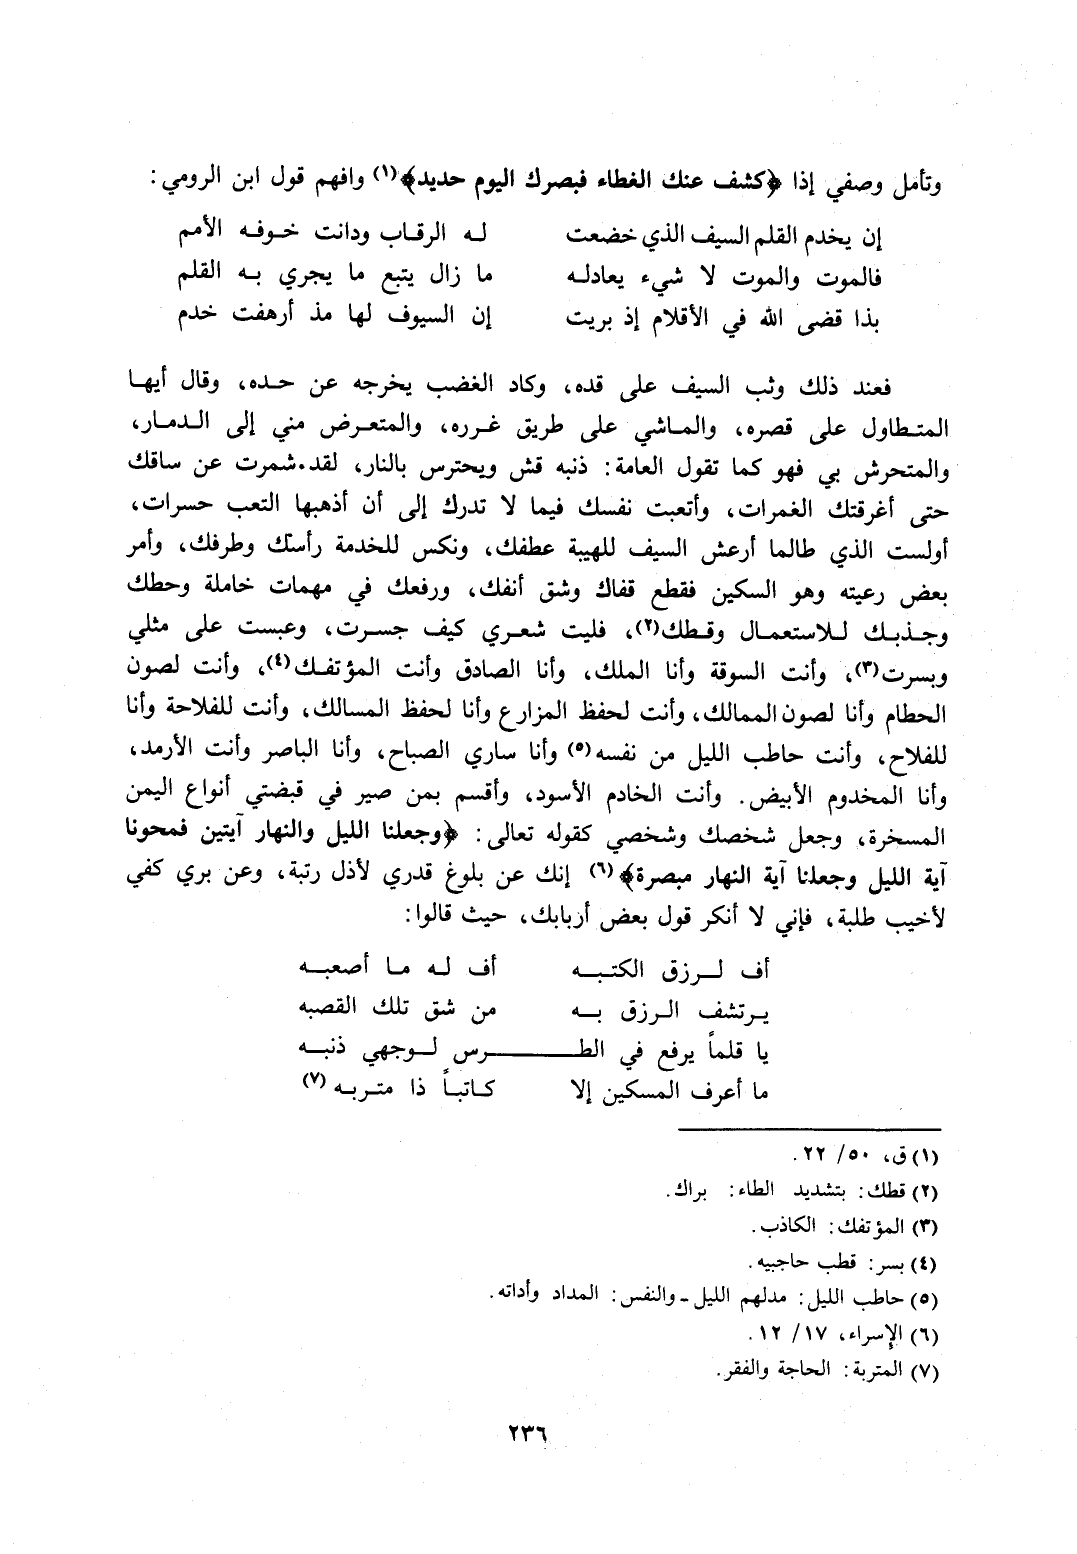 وتأمل وصفي إذا ﴿كشف عنك الغطاء فبصرك اليوم حديد﴾(١) وافهم قول ابن الرومي:
إن يخدم القلم السيف الذي خضعت له الرقاب ودانت خوفه الأمم
فالموت والموت لا شيء يعادله ما زال يتبع ما يجري به القلم
بذا قضى الله في الأقلام إذ بريت إن السيوف لها مذ أرهفت خدم
فعند ذلك وثب السيف على قده، وكاد الغضب يخرجه عن حده، وقال أيها
المتطاول على قصره، والماشي على طريق غرره، والمتعرض مني إلى الدمار،
والمتحرش بي فهو كما تقول العامة: ذنبه قش ويحترس بالنار، لقد شمرت عن ساقك
حتى أغرقتك الغمرات، وأتعبت نفسك فيما لا تدرك إلى أن أذهبها التعب حسرات،
أولست الذي طالما أرعش السيف للهيبة عطفك، ونكس للخدمة رأسك وطرفك، وأمر
بعض رعيته وهو السكين فقطع قفاك وشق أنفك، ورفعك في مهمات خاملة وحطك
وجذبك للاستعمال وقطك(٢)، فليت شعري كيف جسرت، وعبست على مثلي
وبسرت(٣)، وأنت السوقة وأنا الملك، وأنا الصادق وأنت المؤتفك(٤)، وأنت لصون
الحطام وأنا لصون الممالك، وأنت لحفظ المزارع وأنا لحفظ المسالك، وأنت للفلاحة وأنا
للفلاح، وأنت حاطب الليل من نفسه(٥) وأنا ساري الصباح، وأنا الباصر وأنت الأرمد،
وأنا المخدوم الأبيض. وأنت الخادم الأسود، وأقسم بمن صير في قبضتي أنواع اليمن
المسخرة، وجعل شخصك وشخصي كقوله تعالى: ﴿وجعلنا الليل والنهار آيتين فمحونا
آية الليل وجعلنا آية النهار مبصرة﴾(٦) إنك عن بلوغ قدري لأذل رتبة، وعن بري كفي
لأخيب طلبة، فإني لا أنكر قول بعض أربابك، حيث قالوا:
أف لرزق الكتبه أف له ما أصعبه
يرتشف الرزق به من شق تلك القصبه
يا قلماً يرفع في الطـرس لوجهي ذنبه
ما أعرف المسكين إلا كاتباً ذا متربه(٧)
(١) ق، ٥٠/ ٢٢.
(٢) قطك: بتشديد الطاء: براك.
(٣) المؤتفك: الكاذب.
(٤) بسر: قطب حاجبيه.
(٥) حاطب الليل: مدلهم الليل ـ والنفس: المداد وأداته.
(٦) الإسراء، ١٧/ ١٢.
(٧) المتربة: الحاجة والفقر.
٢٣٦